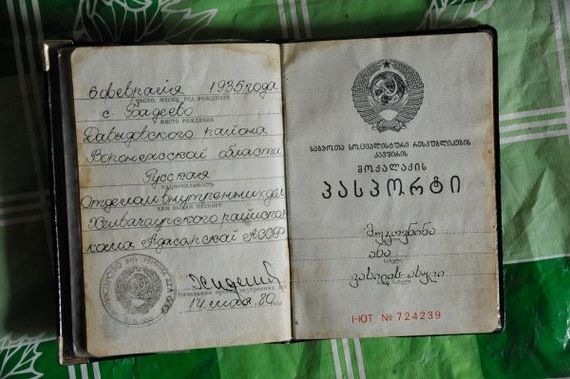 6 февраля 1935 года
число, месяц, год рождения
с. Бадеево
место рождения
Давыдовского района
Воронежской области
Русская
национальность
Отделом внутренних дел
кем выдан паспорт
Хелвачаурского райиспол
кома Аджарской АССР
14 мая 80 года
საბჭოთა სოციალისტური რესპუბლიკების
კავშირის
მოქალაქის
პასპორტი
ანა
ვასილის ასული
I-ЮТ № 724239